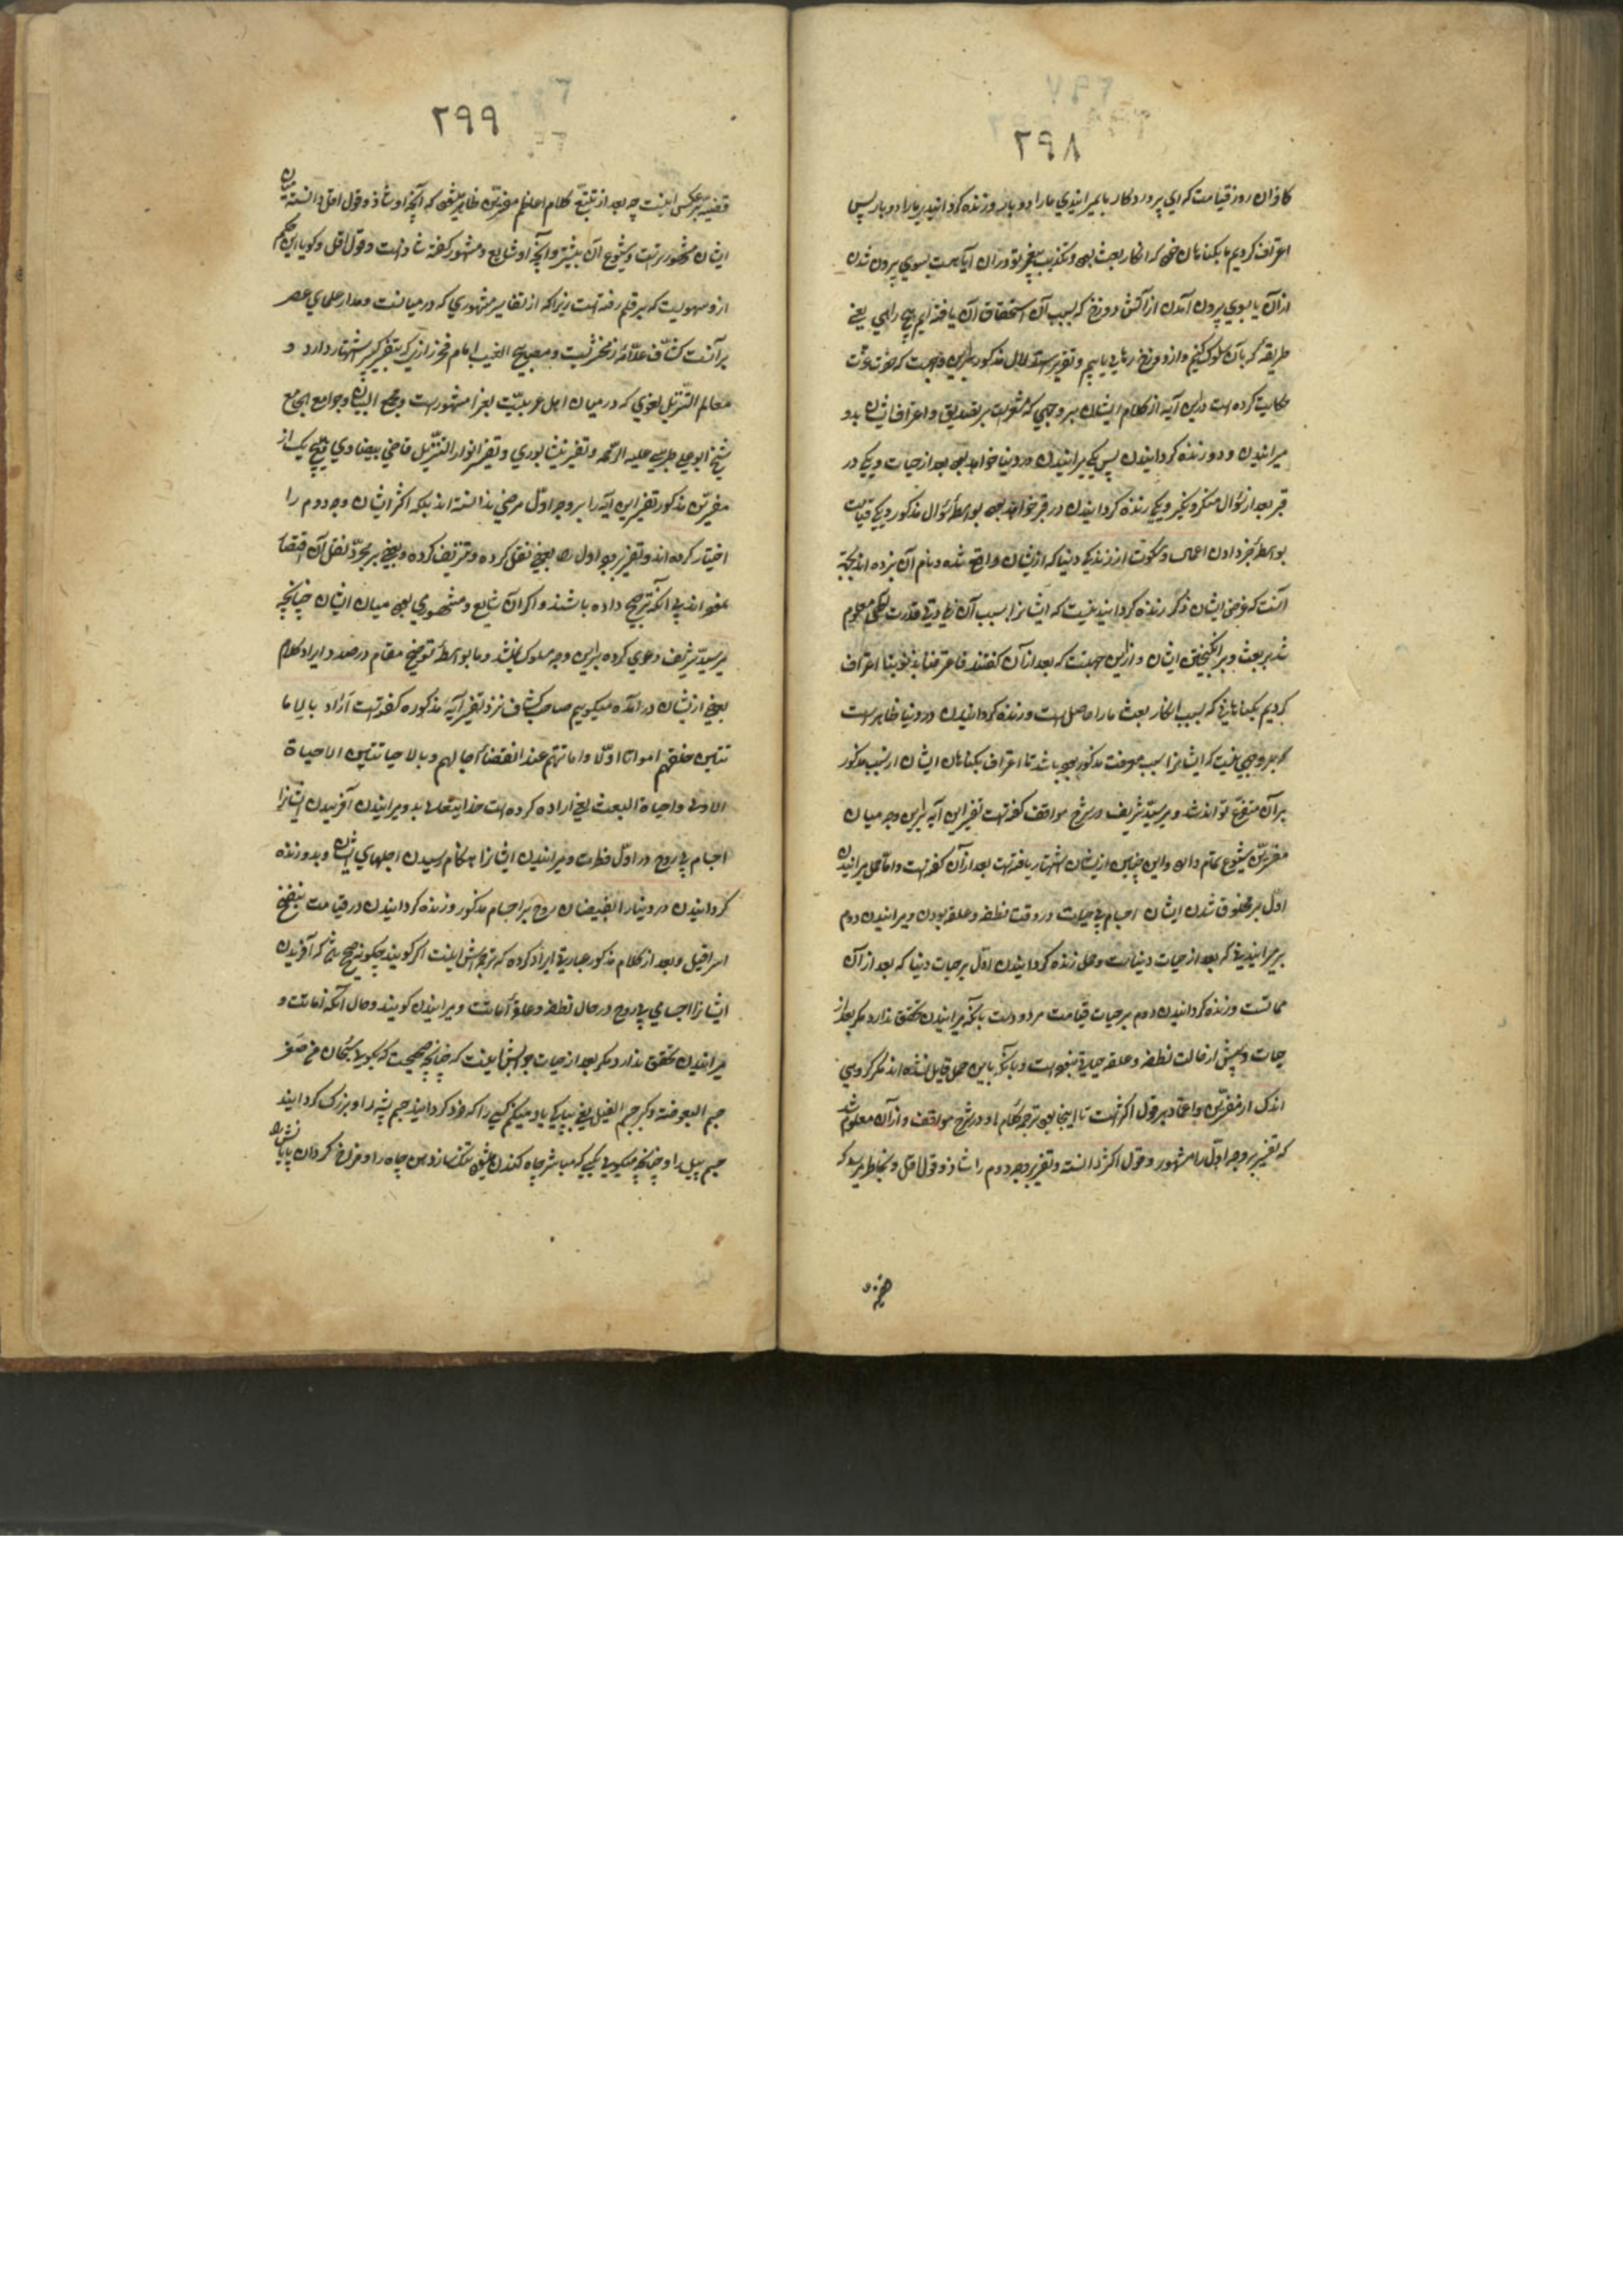 ۲۹۸
کافران روز قیامت که ای پروردکار ما بمیرانیدی ما را دو بار و زنده کردانیدی ما را دو بار پس
اعتراف کردیم ما بکناهان خود که انکار بعث بود و تکذیب پیغمبر تو در آن آیا هست بسوی بیرون شدن
از آن یا بسوی بیرون آمدن از آتش دوزخ که بسبب آن استحقاق آن یافته ایم هیچ راهی یعنی
طریقه که بآن سلوک کنیم و از دوزخ رهایی یابیم و تقریر استدلال مذکور برین وجهست که حضرت عزت
حکایت کرده است درین آیه از کلام ایشان بر وجهی که مشعرست بر تصدیق و اعتراف ایشان بدو
میرانیدن و دو زنده کردانیدن پس یکی میرانیدن در دنیا خواهد بود بعد از حیات و یکی در
قبر بعد از سؤال منکر و نکیر و یکی زنده کردانیدن در قبر خواهد بود بواسطهٔ سؤال مذکور و یکی قیامت
بواسطهٔ جزا دادن اعمال و سکوت از زندگی دنیا که ازیشان واقع شده و نام آن نبرده اند بجهة
آنست که غرض ایشان ذکر زنده کردانیدنیست که ایشانرا بسبب آن قدرت الهی معلوم
شد بر بعث و برانگیختن ایشان و ازین جهتست که بعد از آن کفتند فاعترفنا بذنوبنا اعتراف
کردیم بکناهانی که بسبب انکار بعث ما را حاصل است و زنده کردانیدن در دنیا ظاهر است
که بر وجهی نیست که ایشانرا سبب معرفت مذکور بوده باشد تا اعتراف بکناهان ایشان از سبب مذکور
بر آن متفرع تواند شد و میر سید شریف در شرح مواقف کفته است تفسیر این آیه برین وجه میان
مفسرین شیوع تمام دارد و این چنین ازیشان اشتهار یافته است بعد از آن کفته است و اما حمل میرانیدن
اول بر مخلوق شدن ایشان اجسام بی حیات در وقت نطفه و علقه بودن و میرانیدن دوم
بر میرانیدنی که بعد از حیات دنیاست و حمل زنده کردانیدن اول بر حیات دنیا که بعد از آن
مماتست و زنده کردانیدن دوم بر حیات قیامت مردودست بآنکه میرانیدن تحقق ندارد مکر بعد از
حیات و پیش از حالت نطفه و علقه حیاتی نبوده است و بآنکه باین حمل قایل نشده اند مکر کروهی
اندک از مفسرین و اعتماد بر قول اکثرست تا اینجا بود ترجمه کلام او در شرح مواقف و از آن معلوم شد
که تفسیر بر وجه اول را مشهور و قول اکثر دانسته و تفسیر بر وجه دوم را شاذ و قول اقل و بخاطر میرسد که
۲۹۹
قضیه بر عکس اینست چه بعد از تتبع کلام اعاظم مفسرین ظاهر میشود که آنچه او شاذ و قول اقل دانسته میان
ایشان مشهورترست و شیوع آن بیشتر و آنچه او شایع و مشهور کفته شاذست و قول اقل و کویا این حکم
ازو سهویست که بر قلم رفته است زیراکه از تفاسیر مشهوری که در میانست و مدار علمای عصر
بر آنست کشاف علامهٔ زمخشریست و مفاتیح الغیب امام فخر رازی که بتفسیر کبیر اشتهار دارد و
معالم التنزیل بغوی که در میان اهل عربیت بغرا مشهورست و مجمع البیان و جوامع الجامع
شیخ ابو علی طبرسی علیه الرحمه و تفسیر نیشابوری و تفسیر انوار التنزیل قاضی بیضاوی و هیچ یک از
مفسرین مذکور تفسیر این آیه را بر وجه اول مرضی ندانسته اند بلکه اکثر ایشان وجه دوم را
اختیار کرده اند و تفسیر بوجه اول را بعضی نقل کرده و تزییف کرده و بعضی بر مجرد نقل آن اقتصار
نموده اند بی آنکه ترجیح داده باشند و اکر آن شایع و مشهور می بود میان ایشان چنانچه
میر سید شریف دعوی کرده برین وجه سلوک نمیشد و ما بواسطهٔ توضیح مقام درصدد ایراد کلام
بعضی ازیشان درآمده میکوییم صاحب کشاف نزد تفسیر آیهٔ مذکوره کفته است اراد بالاما
تتین خلقهم امواتا اولا و اماتتهم عند انقضاء آجالهم و بالاحیاءتین الاحیاءة
الاولی و احیاءة البعث یعنی اراده کرده است خدایتعالی بدو میرانیدن آفریدن ایشانرا
اجسام بی روح در اول فطرت و میرانیدن ایشانرا هنکام رسیدن اجلهای ایشان و بدو زنده
کردانیدن در دنیا را بفیضان روح بر اجسام مذکور و زنده کردانیدن در قیامت بنفخ
اسرافیل و بعد از کلام مذکور عبارتی ایراد کرده که ترجمه اش اینست اکر کویند چکونه صحیح باشد که آفریدن
ایشانرا اجسامی بی روح در حال نطفه و علقه اماتت و میرانیدن کویند و حال آنکه اماتت و
میرانیدن تحقق ندارد مکر بعد از حیات جوابش اینست که چنانچه صحیحست که بکویی سبحان من صغر
جسم البعوضة و کبر جسم الفیل یعنی بپاکی یاد میکنم کسی را که خرد کردانید جسم پشه را و بزرک کردانید
جسم پیل را و چنانچه میکویی بکسی که مباشر چاه کندن میشود تنک ساز دهن چاه را و فراخ کردان پایانش را